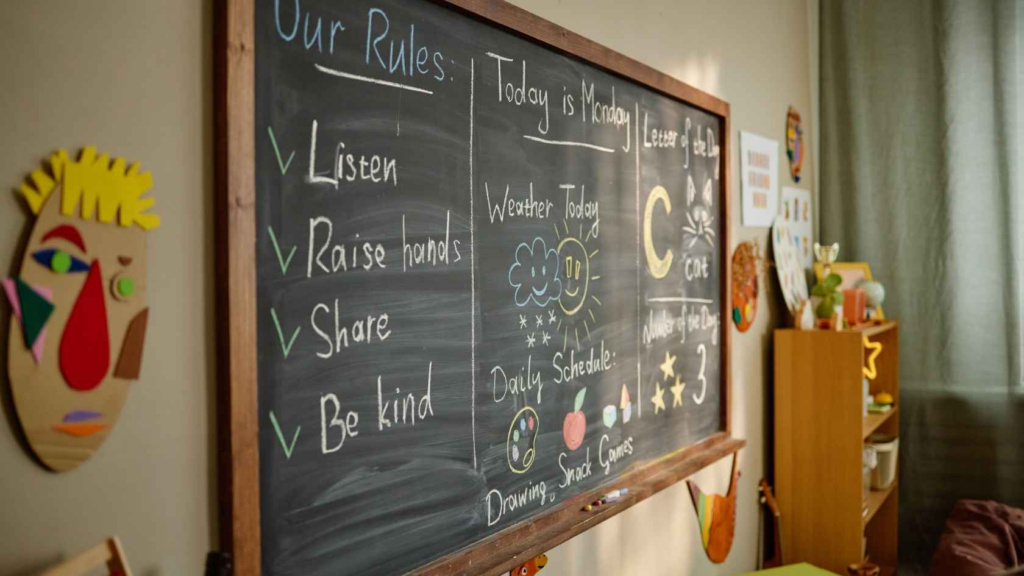 Our Rules:
Listen
Raise hands
Share
Be kind
Today is Monday
Weather Today
Daily Schedule:
Drawing, Snack Games
Letter of the Day
C
cat
Number of the Day
3